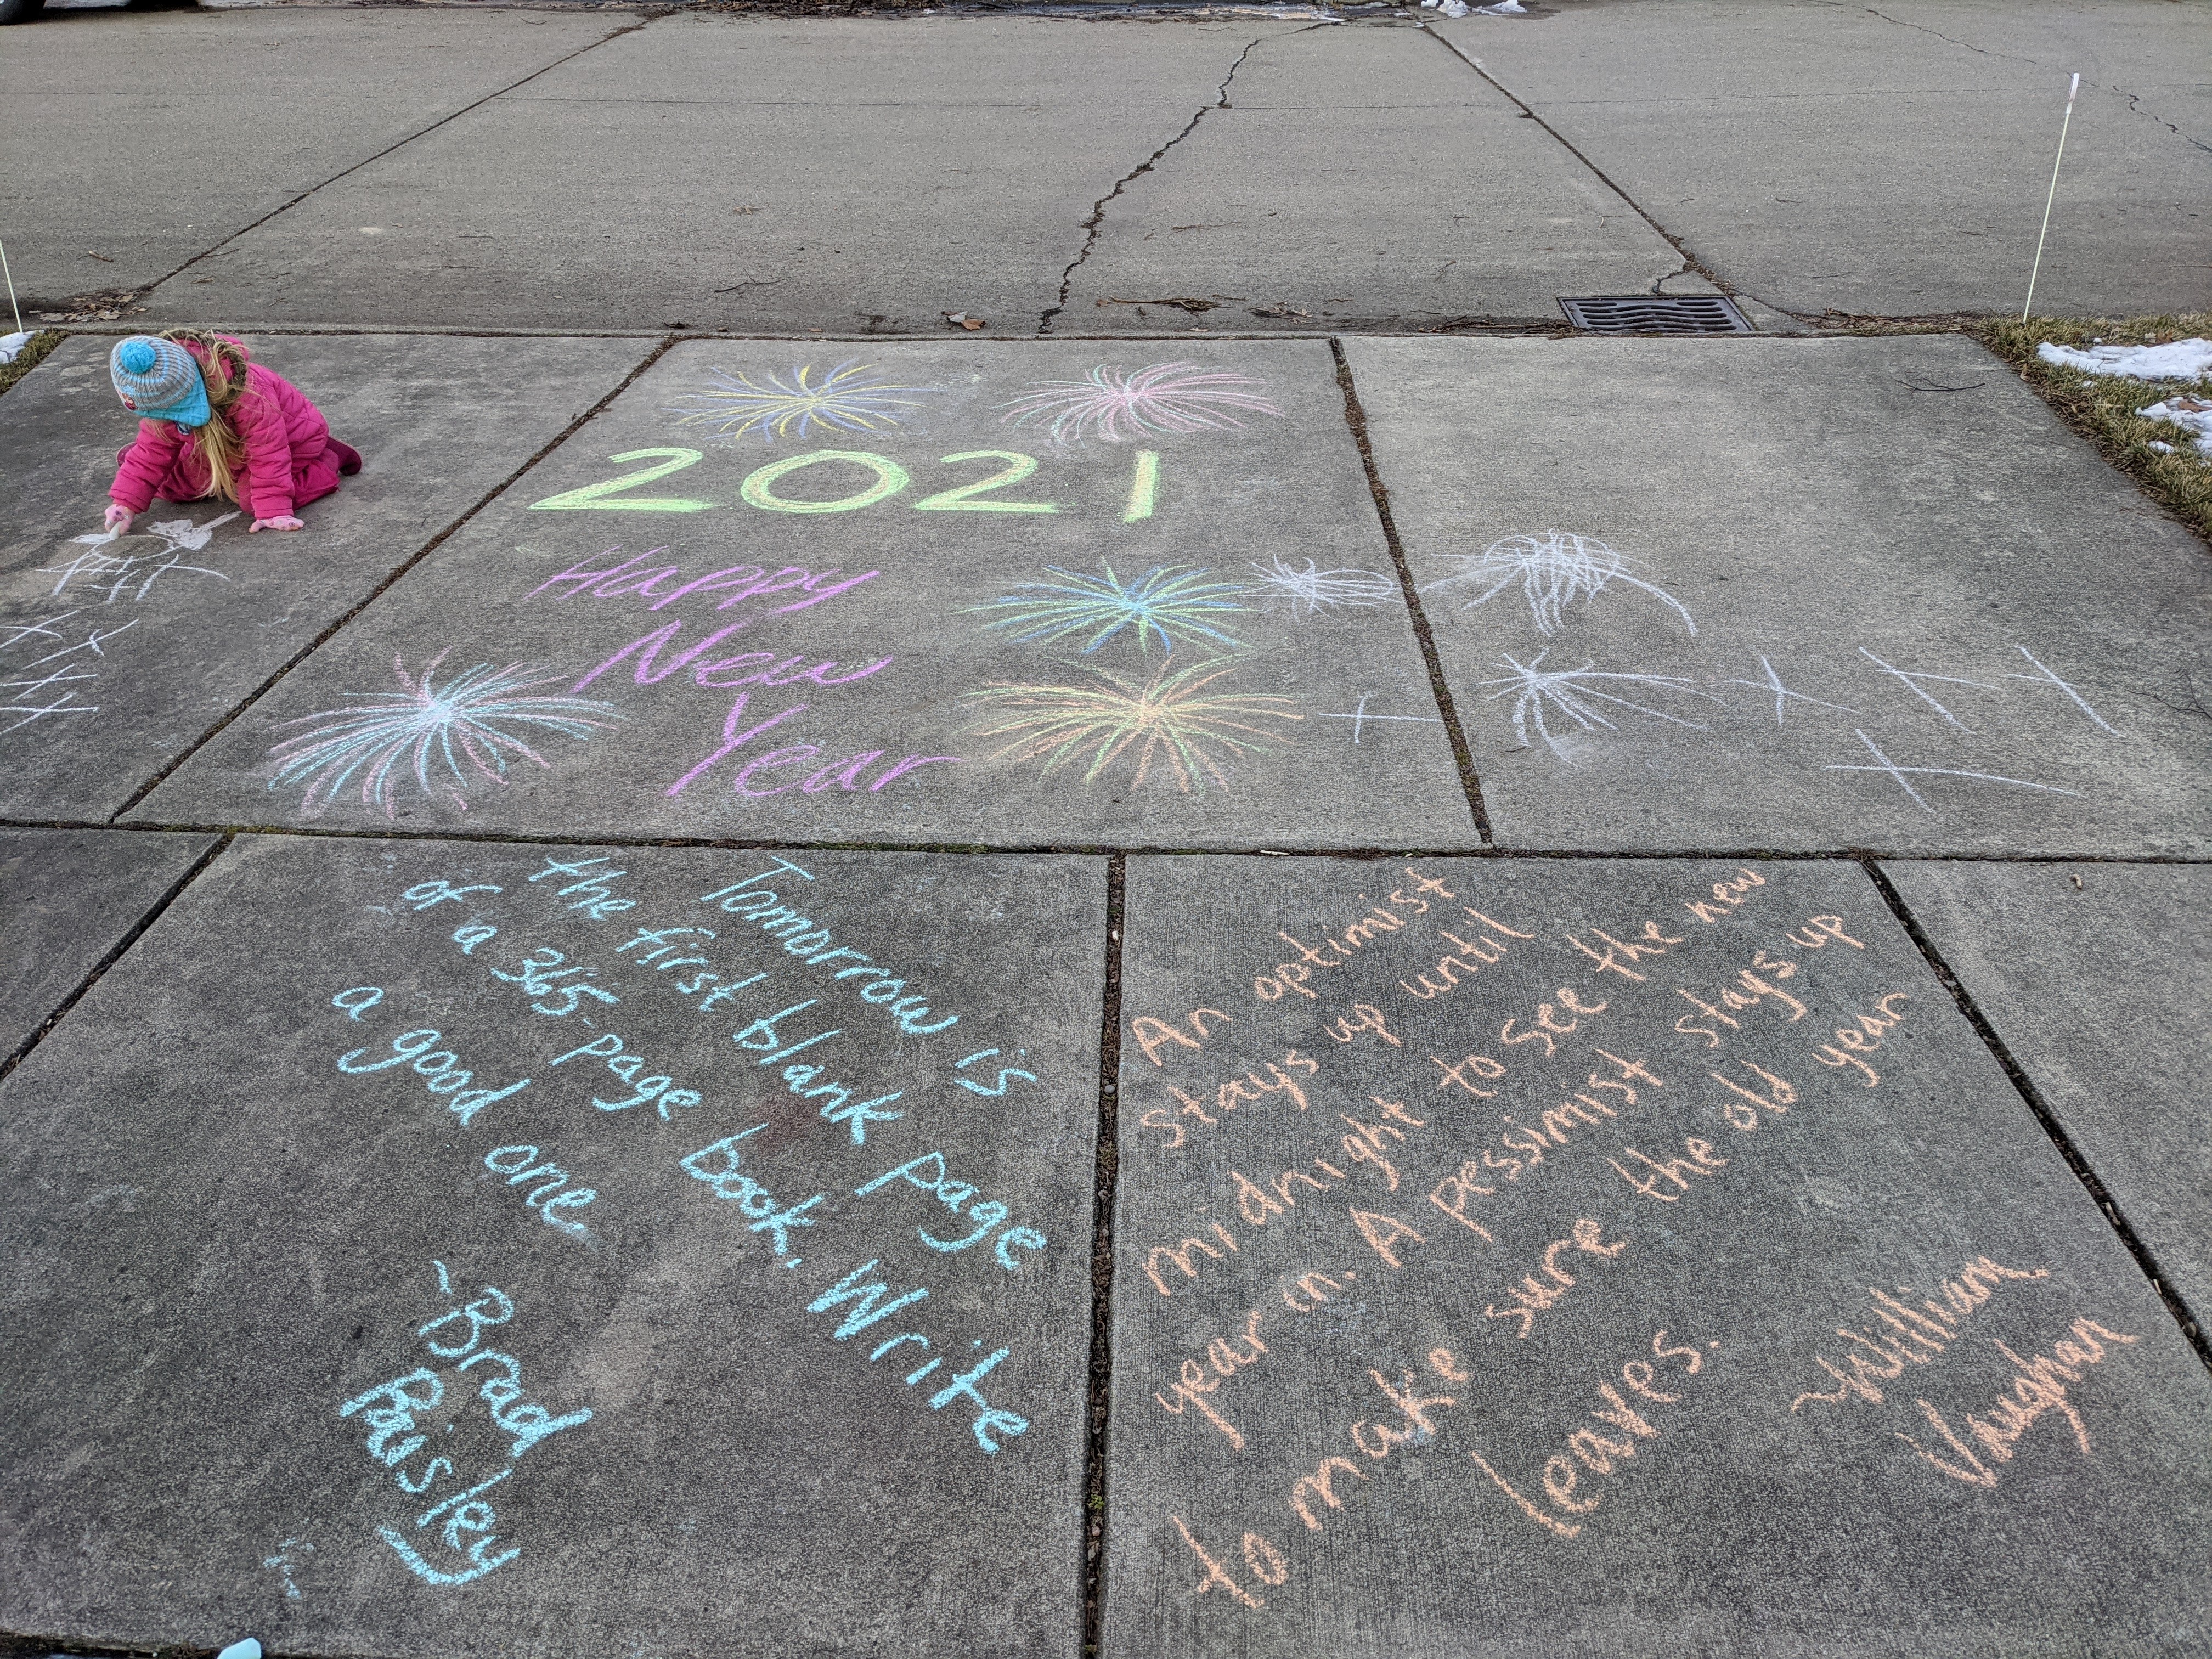 2021
Happy
New
Year
Tomorrow is
the first blank page
of a 365-page book. Write
a good one
~Brad
Paisley
An optimist
stays up until
midnight to see the new
year in. A pessimist stays up
to make sure the old year
leaves.
~William
Vaughan